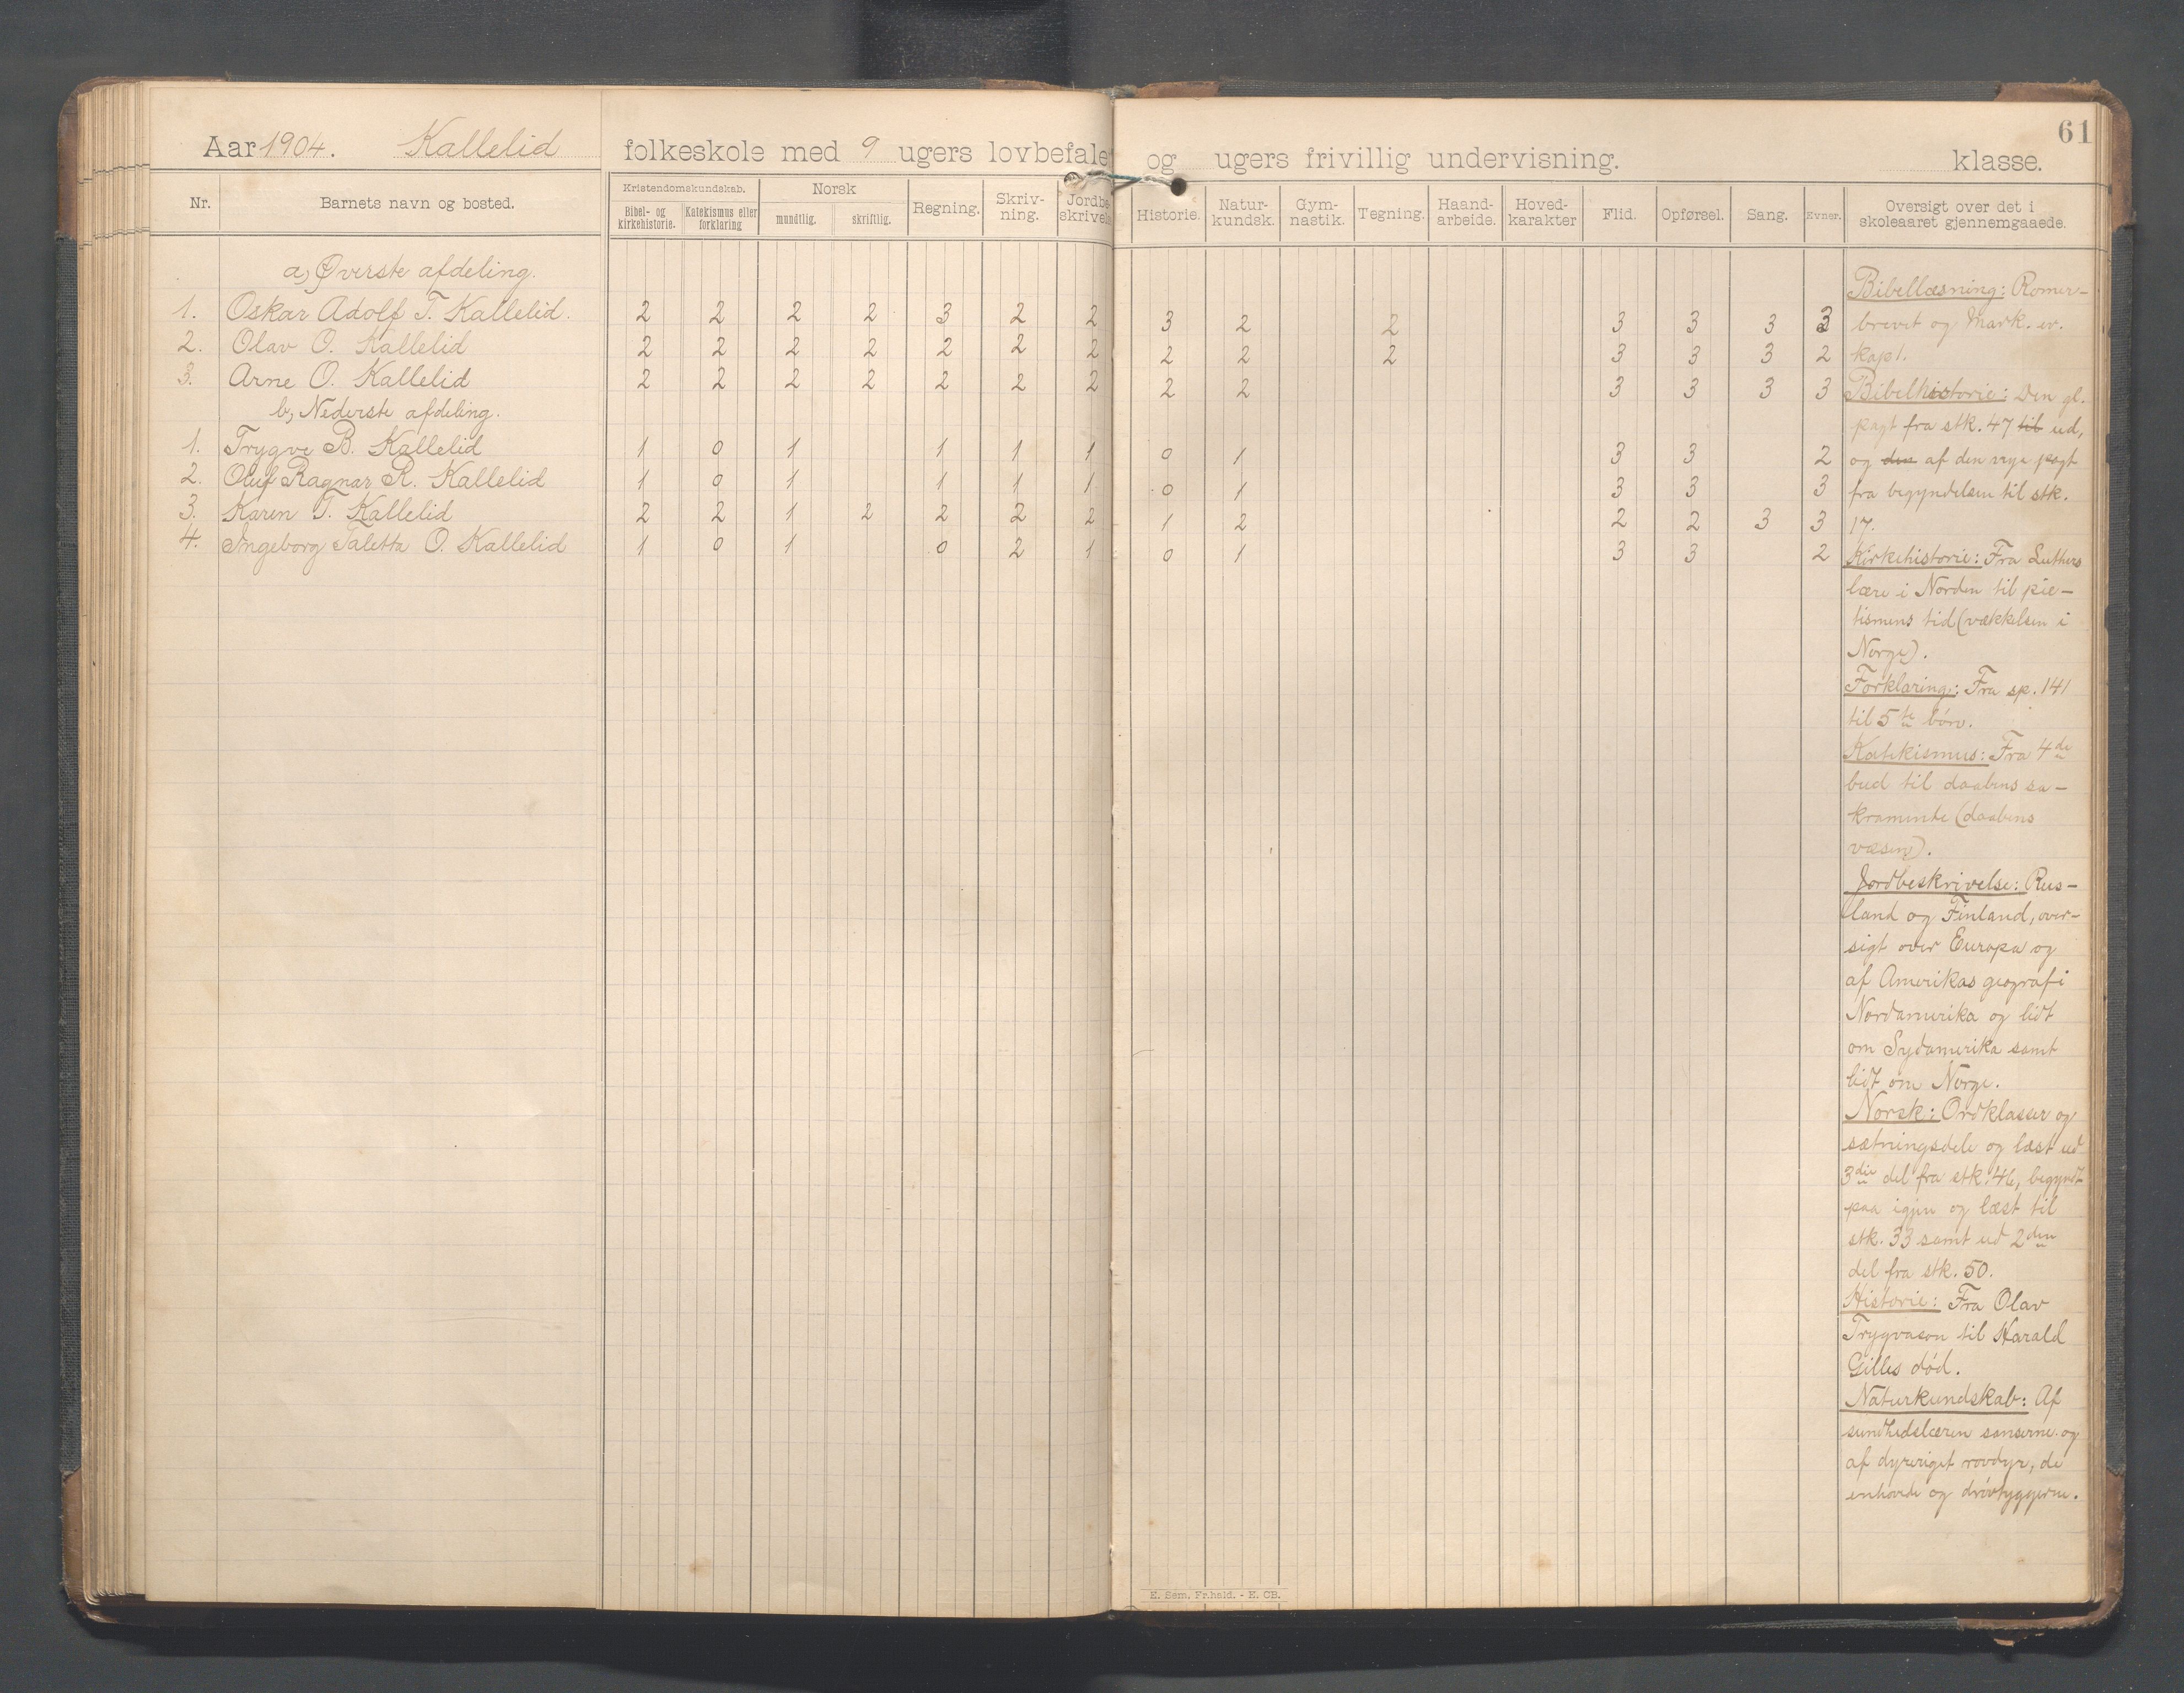 61
Aar 1904. Kallelid folkeskole med 9 ugers lovbefale og ugers frivillig undervisning. klasse.
Nr. Barnets navn og bosted. Kristendomskundskab. Bibel- og kirkehistorie. Katekismus eller forklaring Norsk mundtlig. skriftlig. Regning. Skriv-ning. Jordbe skrivels Historie. Natur-kundsk. Gym-nastik. Tegning. Haand-arbeide. Hoved-karakter Flid. Opførsel. Sang. Evner. Oversigt over det i skoleaaret gjennemgaaede.
a, Øverste afdeling.
1. Oskar Adolf T. Kallelid. 2 2 2 2 3 2 2 3 2 2 3 3 3 3
2. Olav O. Kallelid 2 2 2 2 2 2 2 2 2 2 3 3 3 2
3. Arne O. Kallelid 2 2 2 2 2 2 2 2 2 3 3 3 3
b, Nederste afdeling.
1. Trygve B. Kallelid 1 0 1 1 1 1 0 1 3 3 2
2. Oluf Ragnar R. Kallelid 1 0 1 1 1 1 0 1 3 3 3
3. Karen T. Kallelid 2 2 1 2 2 2 2 1 2 2 2 3 3
4. Ingeborg Taletta O. Kallelid 1 0 1 0 2 1 0 1 3 3 2
Bibellæsning: Romer-
brevet og Mark. ev.
kap 1.
Bibelhistorie: Den gl.
pagt fra stk. 47 til ud,
og den af den nye pagt
fra begyndelsen til stk.
17.
Kirkehistorie: Fra Luthers
lære i Norden til pie-
tismens tid (vækkelsen i
Norge).
Forklaring: Fra sp. 141
til 5te bøn.
Katekismus: Fra 4de
bud til daabens sa-
kramente (daabens
væsen).
Jordbeskrivelse: Rus-
land og Finland, over-
sigt over Europa og
af Amerikas geografi
Nordamerika og lidt
om Sydamerika samt
lidt om Norge.
Norsk: Ordklasser og
sætningsdele og læst ud
3die del fra stk. 46, begyndt
paa igjen og læst til
stk. 33 samt ud 2den
del fra stk. 50.
Historie: Fra Olav
Trygvason til Harald
Gilles død.
Naturkundskab: Af
sundhedslæren sanserne og
af dyreriget rovdyr, de
enhovede og drøvtyggerne.
E. Sem. Fr.hald. - E. CB.